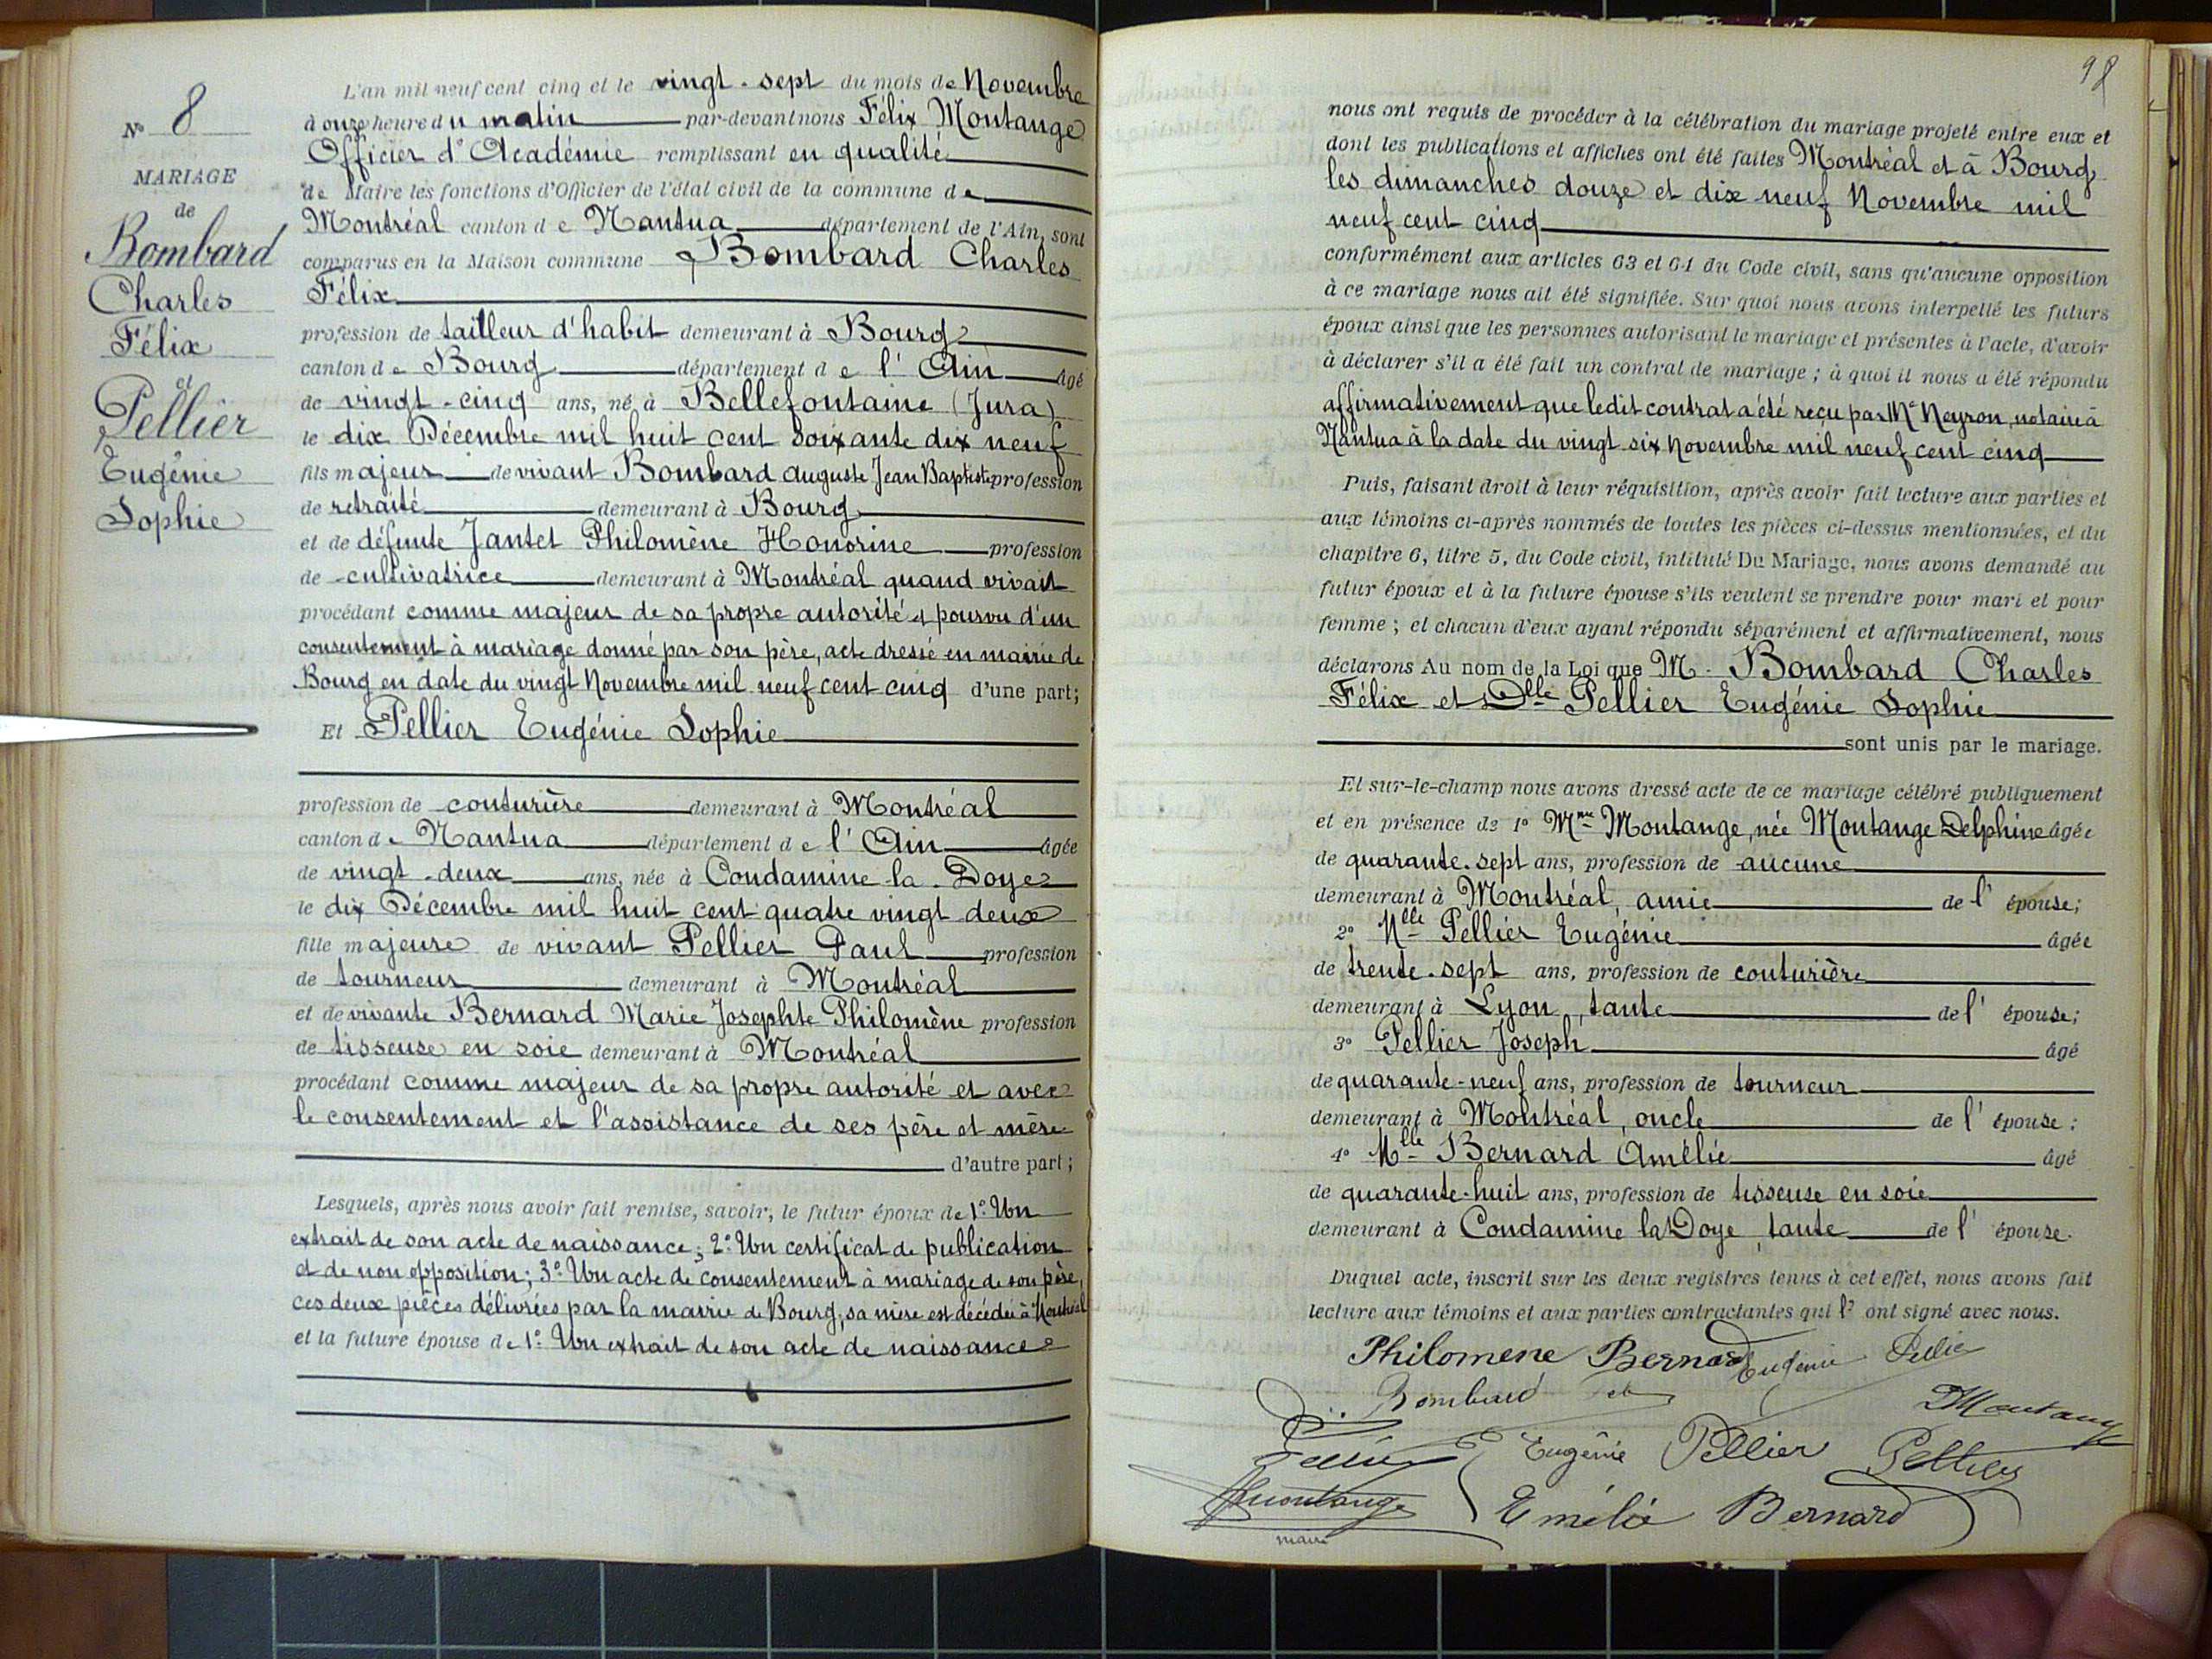 N° 8
MARIAGE
de
Bombard
Charles
Félix
et
Pellier
Eugénie
Sophie
L'an mil neuf cent cinq et le vingt-sept du mois de Novembre
à onze heure du matin par-devant nous Félix Montange
Officier d'Académie remplissant en qualité
de Maire les fonctions d'Officier de l'état civil de la commune de
Montréal canton de Nantua département de l'Ain, sont
comparus en la Maison commune Bombard Charles
Félix
profession de tailleur d'habit demeurant à Bourg
canton de Bourg département de l'Ain âgé
de vingt-cinq ans, né à Bellefontaine (Jura)
le dix Décembre mil huit cent soixante dix neuf
fils majeur de vivant Bombard Auguste Jean Baptiste profession
de retraité demeurant à Bourg
et de défunte Jantet Philomène Honorine profession
de cultivatrice demeurant à Montréal quand vivait
procédant comme majeur de sa propre autorité et pourvu d'un
consentement à mariage donné par son père, acte dressé en mairie de
Bourg en date du vingt Novembre mil neuf cent cinq d'une part;
Et Pellier Eugénie Sophie
profession de couturière demeurant à Montréal
canton de Nantua département de l'Ain âgée
de vingt-deux ans, née à Condamine-la-Doye
le dix Décembre mil huit cent quatre vingt deux
fille majeure de vivant Pellier Paul profession
de tourneur demeurant à Montréal
et de vivante Bernard Marie Josephte Philomène profession
de tisseuse en soie demeurant à Montréal
procédant comme majeur de sa propre autorité et avec
le consentement et l'assistance de ses père et mère
d'autre part;
Lesquels, après nous avoir fait remise, savoir, le futur époux de 1°: Un
extrait de son acte de naissance; 2°: Un certificat de publication
et de non opposition; 3°: Un acte de consentement à mariage de son père,
ces deux pièces délivrées par la mairie de Bourg; sa mère est décédée à Montréal
et la future épouse de 1°: Un extrait de son acte de naissance
98
nous ont requis de procéder à la célébration du mariage projeté entre eux et
dont les publications et affiches ont été faites Montréal et à Bourg
les dimanches douze et dix-neuf Novembre mil
neuf cent cinq
conformément aux articles 63 et 64 du Code civil, sans qu'aucune opposition
à ce mariage nous ait été signifiée. Sur quoi nous avons interpellé les futurs
époux ainsi que les personnes autorisant le mariage et présentes à l'acte, d'avoir
à déclarer s'il a été fait un contrat de mariage; à quoi il nous a été répondu
affirmativement que ledit contrat a été reçu par Me Neyron, notaire à
Nantua à la date du vingt six Novembre mil neuf cent cinq
Puis, faisant droit à leur réquisition, après avoir fait lecture aux parties et
aux témoins ci-après nommés de toutes les pièces ci-dessus mentionnées, et du
chapitre 6, titre 5, du Code civil, intitulé Du Mariage, nous avons demandé au
futur époux et à la future épouse s'ils veulent se prendre pour mari et pour
femme; et chacun d'eux ayant répondu séparément et affirmativement, nous
déclarons Au nom de la Loi que M. Bombard Charles
Félix et Dlle Pellier Eugénie Sophie
sont unis par le mariage.
Et sur-le-champ nous avons dressé acte de ce mariage célébré publiquement
et en présence de 1° Mme Montange, née Montange Delphine âgée
de quarante-sept ans, profession de aucune
demeurant à Montréal, amie de l'épouse;
2° Mlle Pellier Eugénie âgée
de trente-sept ans, profession de couturière
demeurant à Lyon, tante de l'épouse;
3° Pellier Joseph âgé
de quarante-neuf ans, profession de tourneur
demeurant à Montréal, oncle de l'épouse;
4° Mlle Bernard Amélie âgé
de quarante-huit ans, profession de tisseuse en soie
demeurant à Condamine la Doye, tante de l'épouse.
Duquel acte, inscrit sur les deux registres tenus à cet effet, nous avons fait
lecture aux témoins et aux parties contractantes qui l' ont signé avec nous.
Philomène Bernard Eugénie Pellier
Bombard ch
DMontange
Pellier Eugénie Pellier Pellier
Montange Emélie Bernard
maire